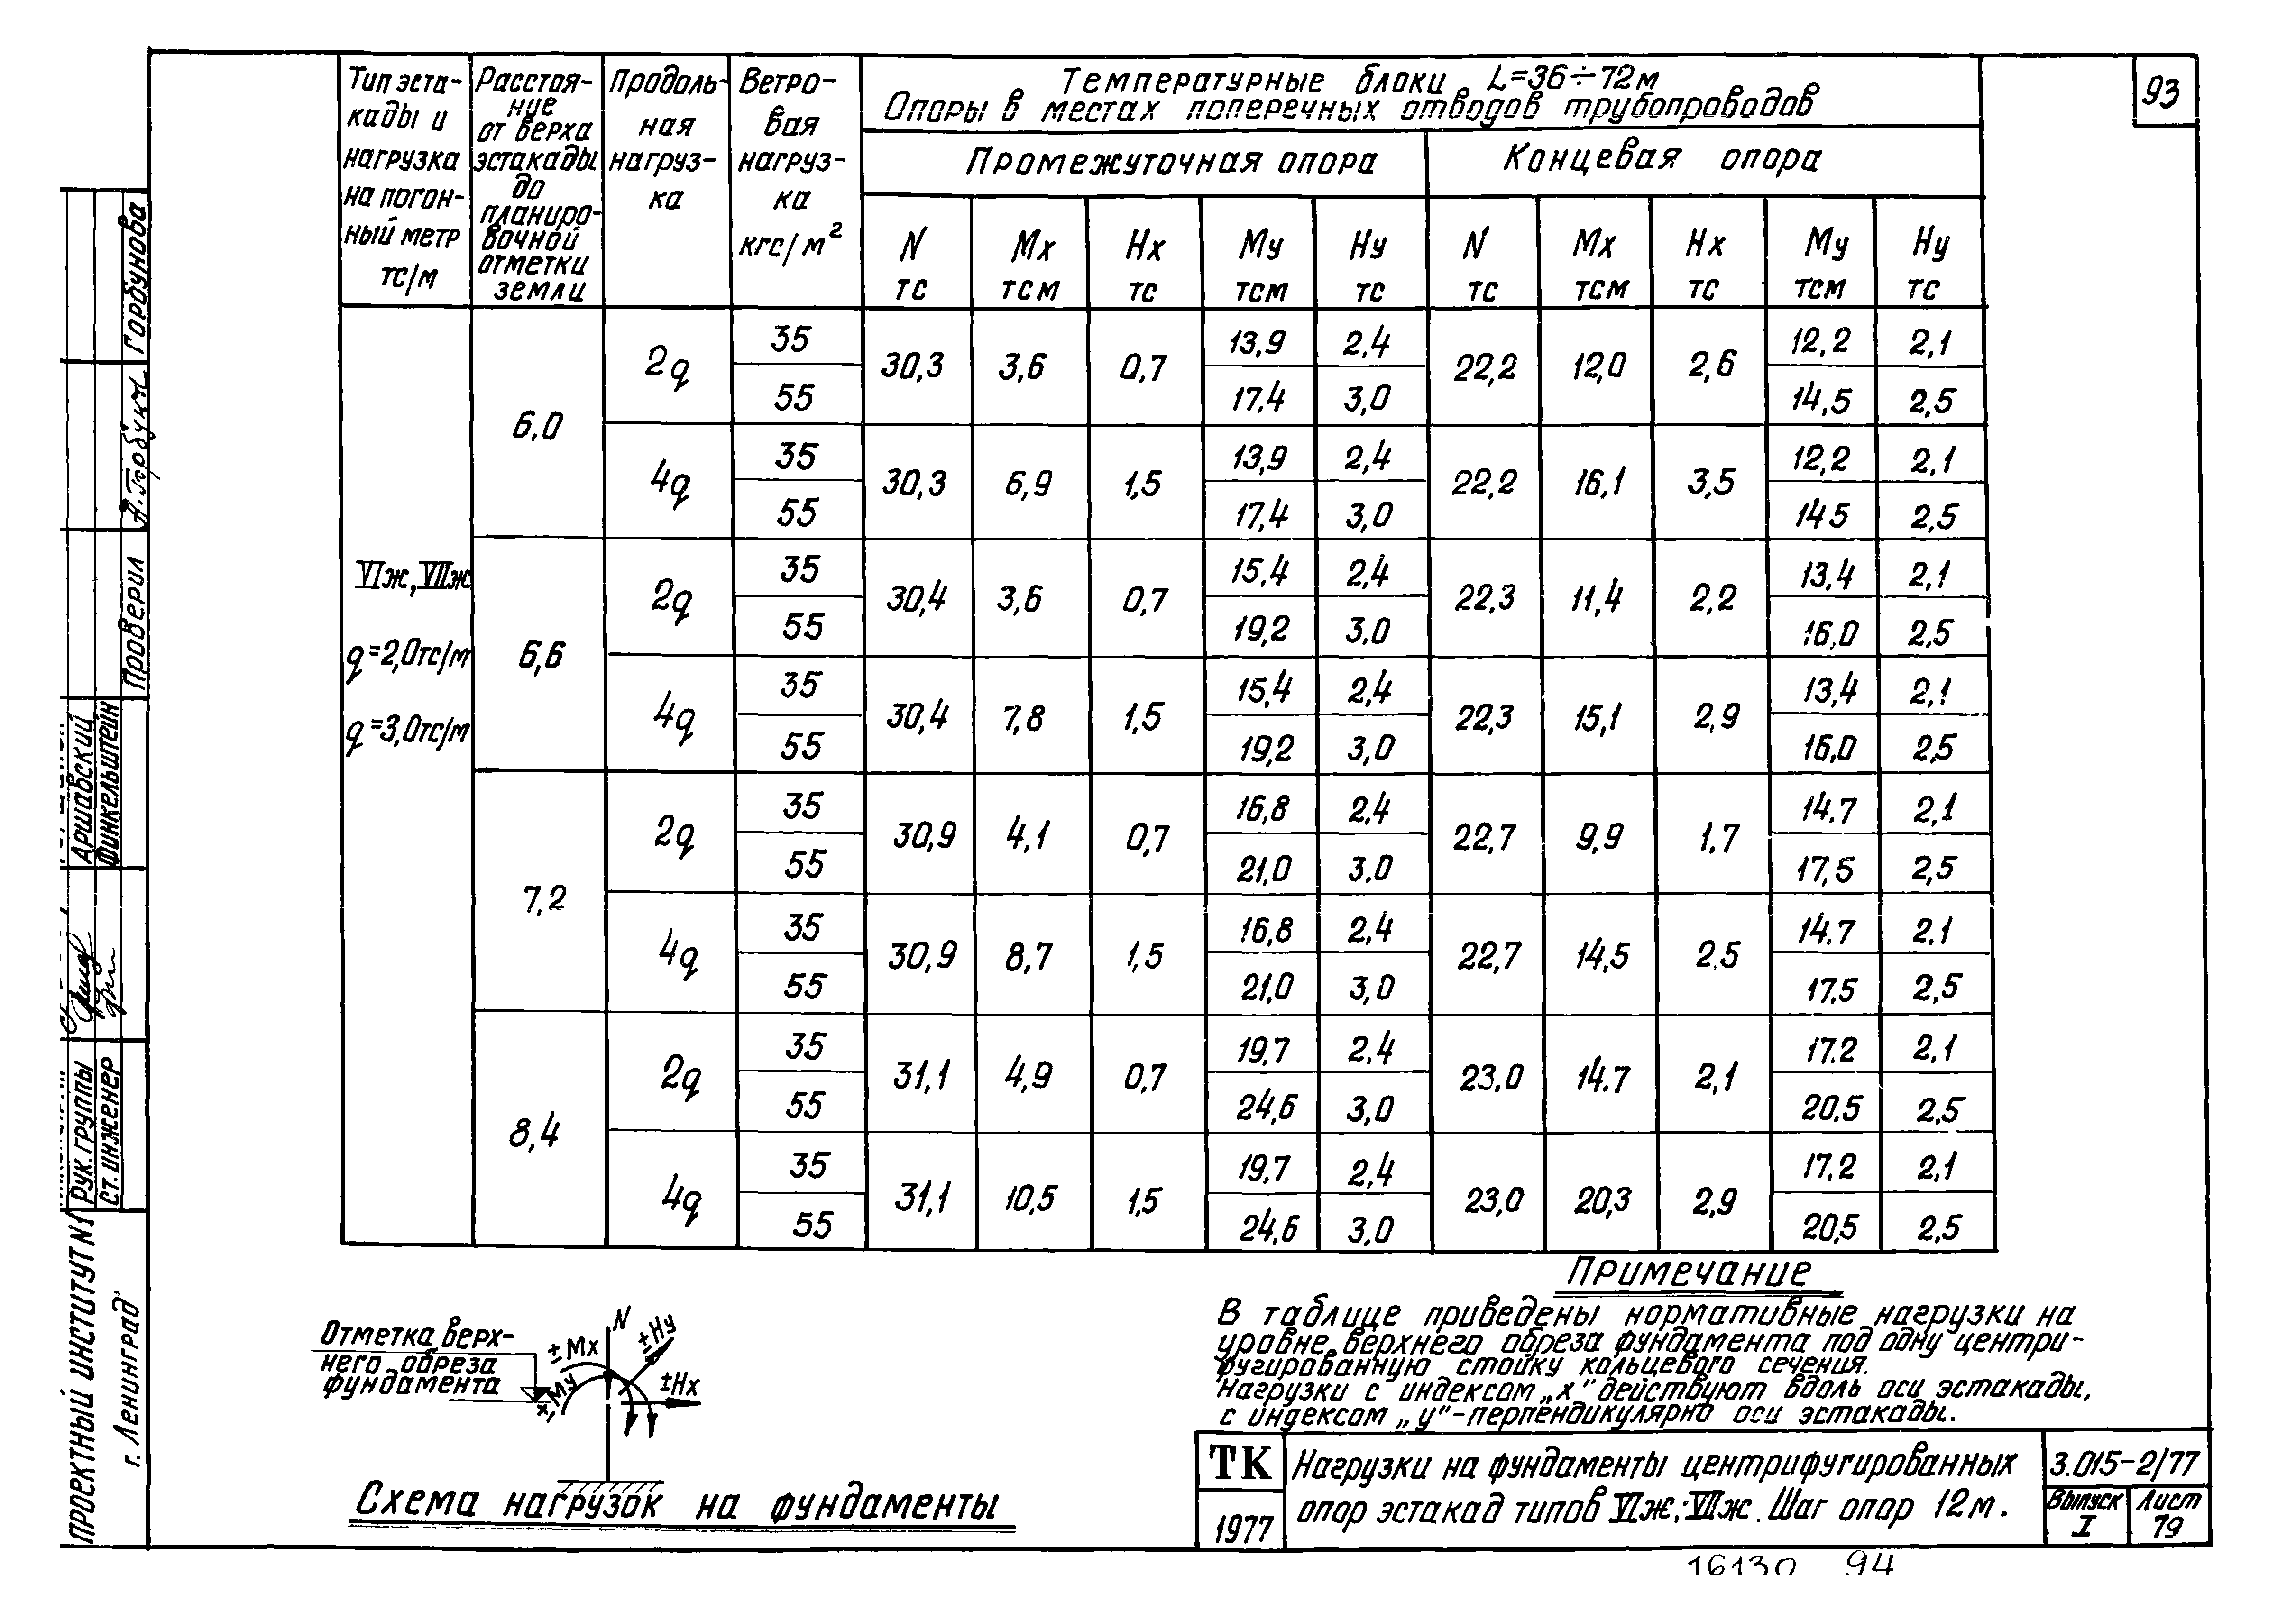 93
Температурные блоки L=36÷72м
Опоры в местах поперечных отводов трубопроводов
Тип эста-
кады и
нагрузка
на погон-
ный метр
тс/м
Расстоя-
ние
от верха
эстакады
до
планиро-
вочной
отметки
земли
Продоль-
ная
нагруз-
ка
Ветро-
вая
нагруз-
ка
кгс/м²
Промежуточная опора
Концевая опора
N Mx Hx My Hy N Mx Hx My Hy
тс тсм тс тсм тс тс тсм тс тсм тс
VIж, VIIж
q=2,0тс/м
q=3,0тс/м
6,0
2q 35 30,3 3,6 0,7 13,9 2,4 22,2 12,0 2,6 12,2 2,1
55 17,4 3,0 14,5 2,5
4q 35 30,3 6,9 1,5 13,9 2,4 22,2 16,1 3,5 12,2 2,1
55 17,4 3,0 14,5 2,5
6,6
2q 35 30,4 3,6 0,7 15,4 2,4 22,3 11,4 2,2 13,4 2,1
55 19,2 3,0 16,0 2,5
4q 35 30,4 7,8 1,5 15,4 2,4 22,3 15,1 2,9 13,4 2,1
55 19,2 3,0 16,0 2,5
7,2
2q 35 30,9 4,1 0,7 16,8 2,4 22,7 9,9 1.7 14.7 2,1
55 21,0 3.0 17,5 2,5
4q 35 30,9 8,7 1,5 16,8 2,4 22,7 14,5 2.5 14.7 2.1
55 21,0 3,0 17,5 2,5
8,4
2q 35 31,1 4,9 0,7 19,7 2,4 23,0 14.7 2,1 17.2 2,1
55 24,6 3,0 20,5 2,5
4q 35 31,1 10,5 1,5 19,7 2,4 23,0 20,3 2,9 17,2 2,1
55 24,6 3,0 20,5 2,5
Примечание
В таблице приведены нормативные нагрузки на
уровне верхнего обреза фундамента под одну центри-
фугированную стойку кольцевого сечения.
Нагрузки с индексом „x" действуют вдоль оси эстакады,
с индексом „y"-перпендикулярно оси эстакады.
Отметка верх-
него обреза
фундамента
N
±Mx
±My
±Hy
±Hx
Схема нагрузок на фундаменты
ТК
1977
Нагрузки на фундаменты центрифугированных
опор эстакад типов VIж; VIIж. Шаг опор 12м.
3.015-2/77
Выпуск
I
Лист
79
16130 94
Проектный институт №1
г. Ленинград
Рук. группы
Аршавский
Ст. инженер
Финкельштейн
Проверил
А.Горбун
Горбунова